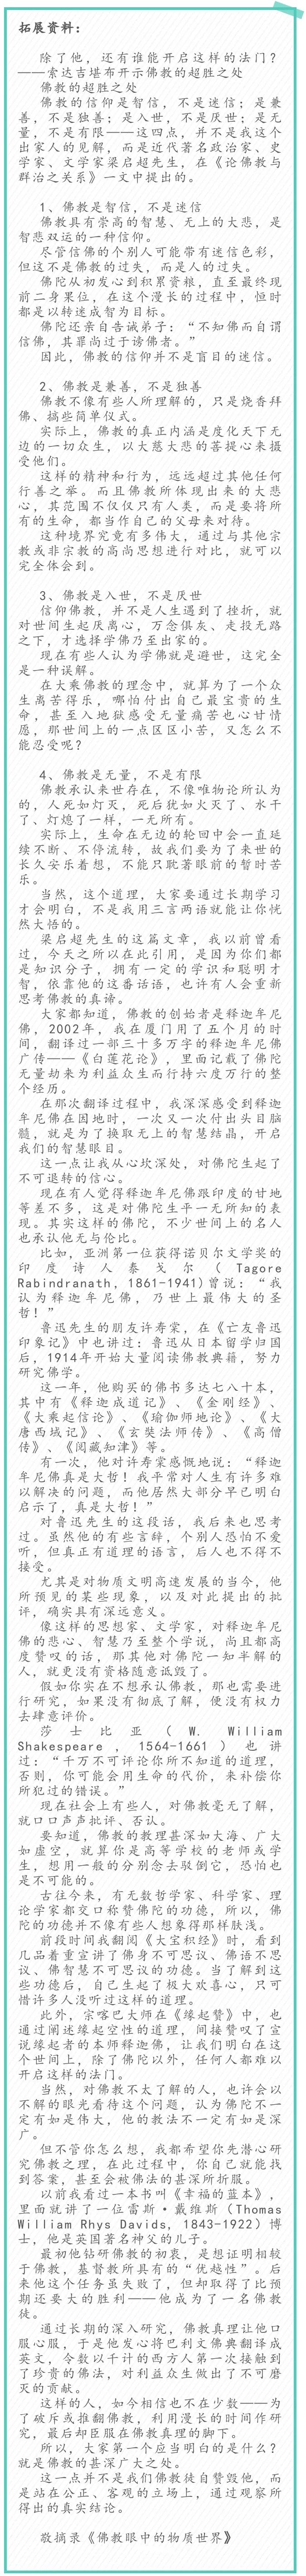 拓展资料：
除了他，还有谁能开启这样的法门？
——索达吉堪布开示佛教的超胜之处
佛教的超胜之处
佛教的信仰是智信，不是迷信；是兼
善，不是独善；是入世，不是厌世；是无
量，不是有限——这四点，并不是我这个
出家人的见解，而是近代著名政治家、史
学家、文学家梁启超先生，在《论佛教与
群治之关系》一文中提出的。
1、佛教是智信，不是迷信
佛教具有崇高的智慧、无上的大悲，是
智悲双运的一种信仰。
尽管信佛的个别人可能带有迷信色彩，
但这不是佛教的过失，而是人的过失。
佛陀从初发心到积累资粮，直至最终现
前二身果位，在这个漫长的过程中，恒时
都是以转迷成智为目标。
佛陀还亲自告诫弟子：“不知佛而自谓
信佛，其罪尚过于谤佛者。”
因此，佛教的信仰并不是盲目的迷信。
2、佛教是兼善，不是独善
佛教不像有些人所理解的，只是烧香拜
佛、搞些简单仪式。
实际上，佛教的真正内涵是度化天下无
边的一切众生，以大慈大悲的菩提心来摄
受他们。
这样的精神和行为，远远超过其他任何
行善之举。而且佛教所体现出来的大悲
心，其范围不仅仅只有人类，而是要将所
有的生命，都当作自己的父母来对待。
这种境界究竟有多伟大，通过与其他宗
教或非宗教的高尚思想进行对比，就可以
完全体会到。
3、佛教是入世，不是厌世
信仰佛教，并不是人生遇到了挫折，就
对世间生起厌离心，万念俱灰、走投无路
之下，才选择学佛乃至出家的。
现在有些人认为学佛就是避世，这完全
是一种误解。
在大乘佛教的理念中，就算为了一个众
生离苦得乐，哪怕付出自己最宝贵的生
命，甚至入地狱感受无量痛苦也心甘情
愿，那世间上的一点区区小苦，又怎么不
能忍受呢？
4、佛教是无量，不是有限
佛教承认来世存在，不像唯物论所认为
的，人死如灯灭，死后犹如火灭了、水干
了、灯熄了一样，一无所有。
实际上，生命在无边的轮回中会一直延
续不断、不停流转，故我们要为了来世的
长久安乐着想，不能只耽著眼前的暂时苦
乐。
当然，这个道理，大家要通过长期学习
才会明白，不是我用三言两语就能让你恍
然大悟的。
梁启超先生的这篇文章，我以前曾看
过，今天之所以在此引用，是因为你们都
是知识分子，拥有一定的学识和聪明才
智，依靠他的这番话语，也许有人会重新
思考佛教的真谛。
大家都知道，佛教的创始者是释迦牟尼
佛，2002年，我在厦门用了五个月的时
间，翻译过一部三十多万字的释迦牟尼佛
广传——《白莲花论》，里面记载了佛陀
无量劫来为利益众生而行持六度万行的整
个经历。
在那次翻译过程中，我深深感受到释迦
牟尼佛在因地时，一次又一次付出头目脑
髓，就是为了换取无上的智慧结晶，开启
我们的智慧眼目。
这一点让我从心坎深处，对佛陀生起了
不可退转的信心。
现在有人觉得释迦牟尼佛跟印度的甘地
等差不多，这是对佛陀生平一无所知的表
现。其实这样的佛陀，不少世间上的名人
也承认他无与伦比。
比如，亚洲第一位获得诺贝尔文学奖的
印度诗人泰戈尔（Tagore
Rabindranath，1861-1941)曾说：“我
认为释迦牟尼佛，乃世上最伟大的圣
哲！”
鲁迅先生的朋友许寿棠，在《亡友鲁迅
印象记》中也讲过：鲁迅从日本留学归国
后，1914年开始大量阅读佛教典籍，努力
研究佛学。
这一年，他购买的佛书多达七八十本，
其中有《释迦成道记》、《金刚经》、
《大乘起信论》、《瑜伽师地论》、《大
唐西域记》、《玄奘法师传》、《高僧
传》、《阅藏知津》等。
有一次，他对许寿棠感慨地说：“释迦
牟尼佛真是大哲！我平常对人生有许多难
以解决的问题，而他居然大部分早已明白
启示了，真是大哲！”
对鲁迅先生的这段话，我后来也思考
过。虽然他的有些言辞，个别人恐怕不爱
听，但真正有道理的语言，后人也不得不
接受。
尤其是对物质文明高速发展的当今，他
所预见的某些现象，以及对此提出的批
评，确实具有深远意义。
像这样的思想家、文学家，对释迦牟尼
佛的悲心、智慧乃至整个学说，尚且都高
度赞叹的话，那其他对佛陀一知半解的
人，就更没有资格随意诋毁了。
假如你实在不想承认佛教，那也需要进
行研究，如果没有彻底了解，便没有权力
去肆意评价。
莎士比亚（W. William
Shakespeare，1564-1661）也讲
过：“千万不可评论你所不知道的道理，
否则，你可能会用生命的代价，来补偿你
所犯过的错误。”
现在社会上有些人，对佛教毫无了解，
就口口声声批评、否认。
要知道，佛教的教理甚深如大海、广大
如虚空，就算你是高等学校的老师或学
生，想用一般的分别念去驳倒它，恐怕也
是不可能的。
古往今来，有无数哲学家、科学家、理
论学家都交口称赞佛陀的功德，所以，佛
陀的功德并不像有些人想象得那样肤浅。
前段时间我翻阅《大宝积经》时，看到
几品着重宣讲了佛身不可思议、佛语不思
议、佛智慧不可思议的功德。当了解到这
些功德后，自己生起了极大欢喜心，只可
惜许多人没听过这样的道理。
此外，宗喀巴大师在《缘起赞》中，也
通过阐述缘起空性的道理，间接赞叹了宣
说缘起者的本师释迦佛，让我们明白在这
个世间上，除了佛陀以外，任何人都难以
开启这样的法门。
当然，对佛教不太了解的人，也许会以
不解的眼光看待这个问题，认为佛陀不一
定有如是伟大，他的教法不一定有如是深
广。
但不管你怎么想，我都希望你先潜心研
究佛教之理，在此过程中，你自己就能找
到答案，甚至会被佛法的甚深所折服。
以前我看过一本书叫《幸福的蓝本》，
里面就讲了一位雷斯·戴维斯（Thomas
William Rhys Davids，1843-1922）博
士，他是英国著名神父的儿子。
最初他钻研佛教的初衷，是想证明相较
于佛教，基督教所具有的“优越性”。后
来他这个任务虽失败了，但却取得了比预
期还要大的胜利——他成为了一名佛教
徒。
通过长期的深入研究，佛教真理让他口
服心服，于是他发心将巴利文佛典翻译成
英文，令数以千计的西方人第一次接触到
了珍贵的佛法，对利益众生做出了不可磨
灭的贡献。
这样的人，如今相信也不在少数——为
了破斥或推翻佛教，利用漫长的时间作研
究，最后却臣服在佛教真理的脚下。
所以，大家第一个应当明白的是什么？
就是佛教的甚深广大之处。
这一点并不是我们佛教徒自赞毁他，而
是站在公正、客观的立场上，通过观察所
得出的真实结论。
敬摘录《佛教眼中的物质世界》